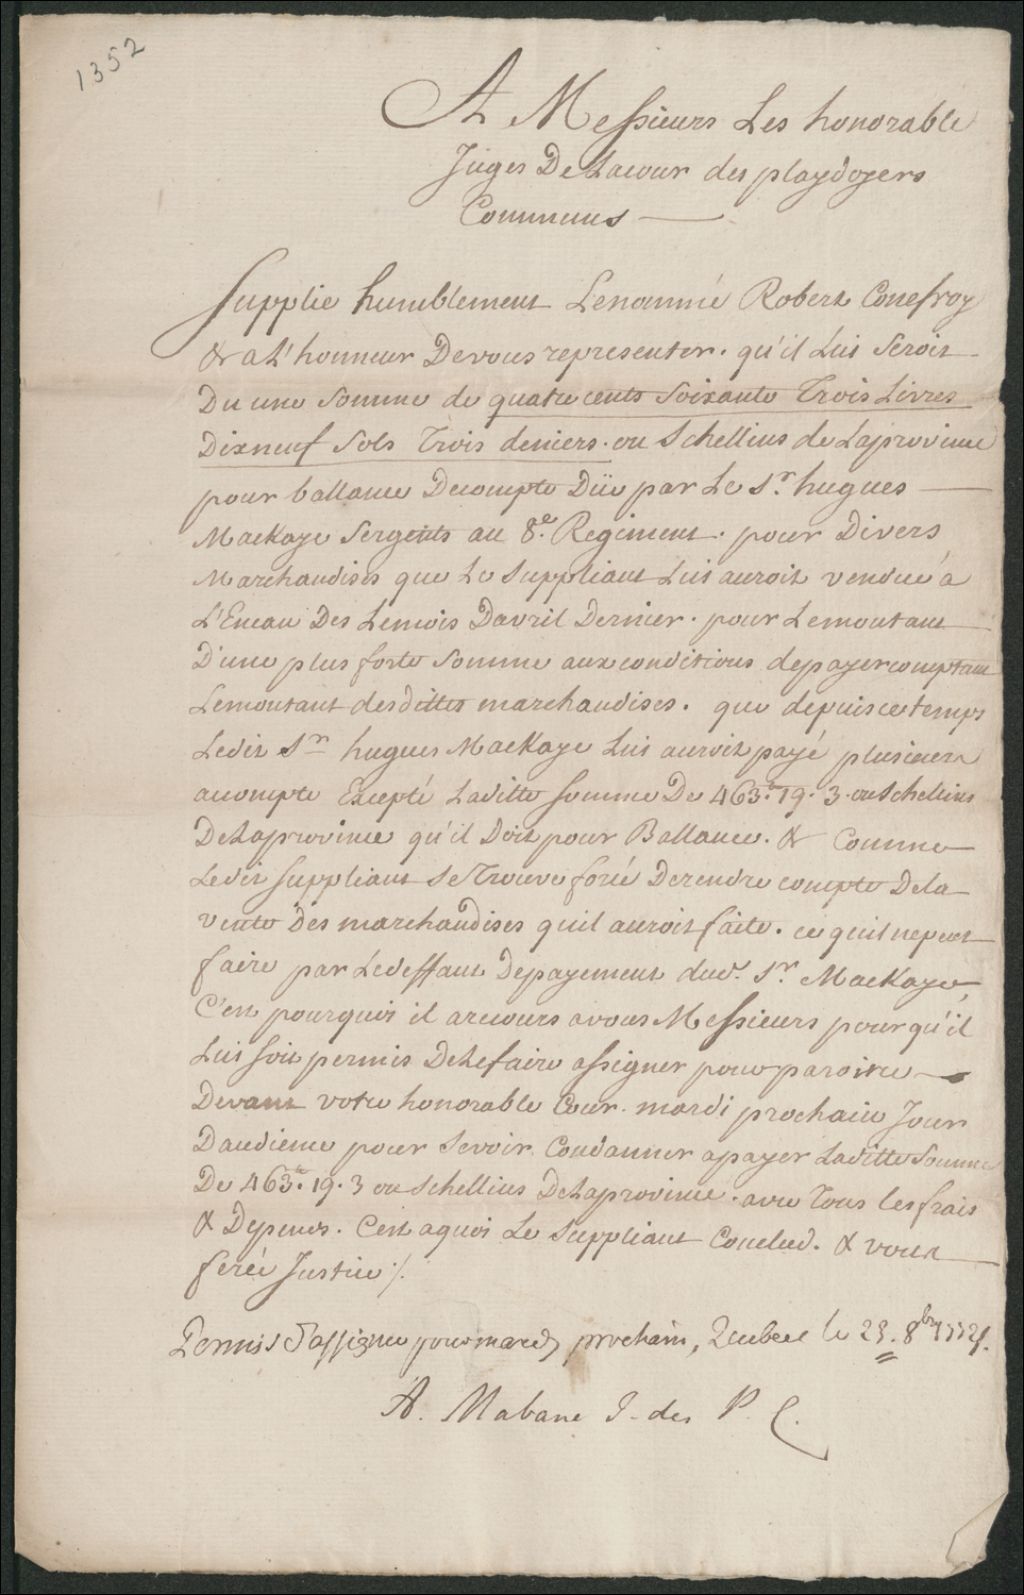 1352
A Messieurs Les honorable
Juges De Lacour des playdoyers
Communs
Supplie humblement Lenommé Robert Conefroy
& a L'honneur Devous representer. qu'il Luis Seroit
Du une Somme de quatre cents Soixante Trois Livres
Dixneuf Sols Trois deniers. ou Schellins de Laprovince
pour ballance Decompte Düe par Le Sr. hugues
Mackaye Sergents au 8e. Regiment. pour Divers
Marchandises que Le Suppliant Luis auroit vendue a
L'Encan Des Lemois Davril Dernier. pour Lemontant
D'une plus forte Somme aux conditions depayer comptant
Lemontant des dittes marchandises. que depuis ce temps
Ledit Sr hugues Mackaye Luis auroit payé plusieurs
acompte Excepté Laditte Somme De 463.tt 19. 3. ou Schellins
De Laprovince qu'il Doit pour Ballance. & Comme
Ledit Suppliant Se Trouve forcé Derendre compte Dela
vente Des marchandises quil auroit faite. ce quil nepeut
faire par Ledeffaut Depayement dud. Sr. Mackaye,
C'est pourquoi il arecours avous Messieurs pour qu'il
Luis Soit permis De Lefaire assigner pour paroitre
Devant votre honorable Cour. mardi prochain Jour
Daudience pour Sevoir Condanner apayer Laditte Somme
De 463.tt 19. 3 ou Schellins De Laprovince. avec Tous les frais
& Depences. C'est aquoi Le Suppliant Conclud. & vous
feréz Justice ./.
Permis d'assigner pour mardy prochain, Quebec le 23. 8bre
A. Mabane J. des P. C.